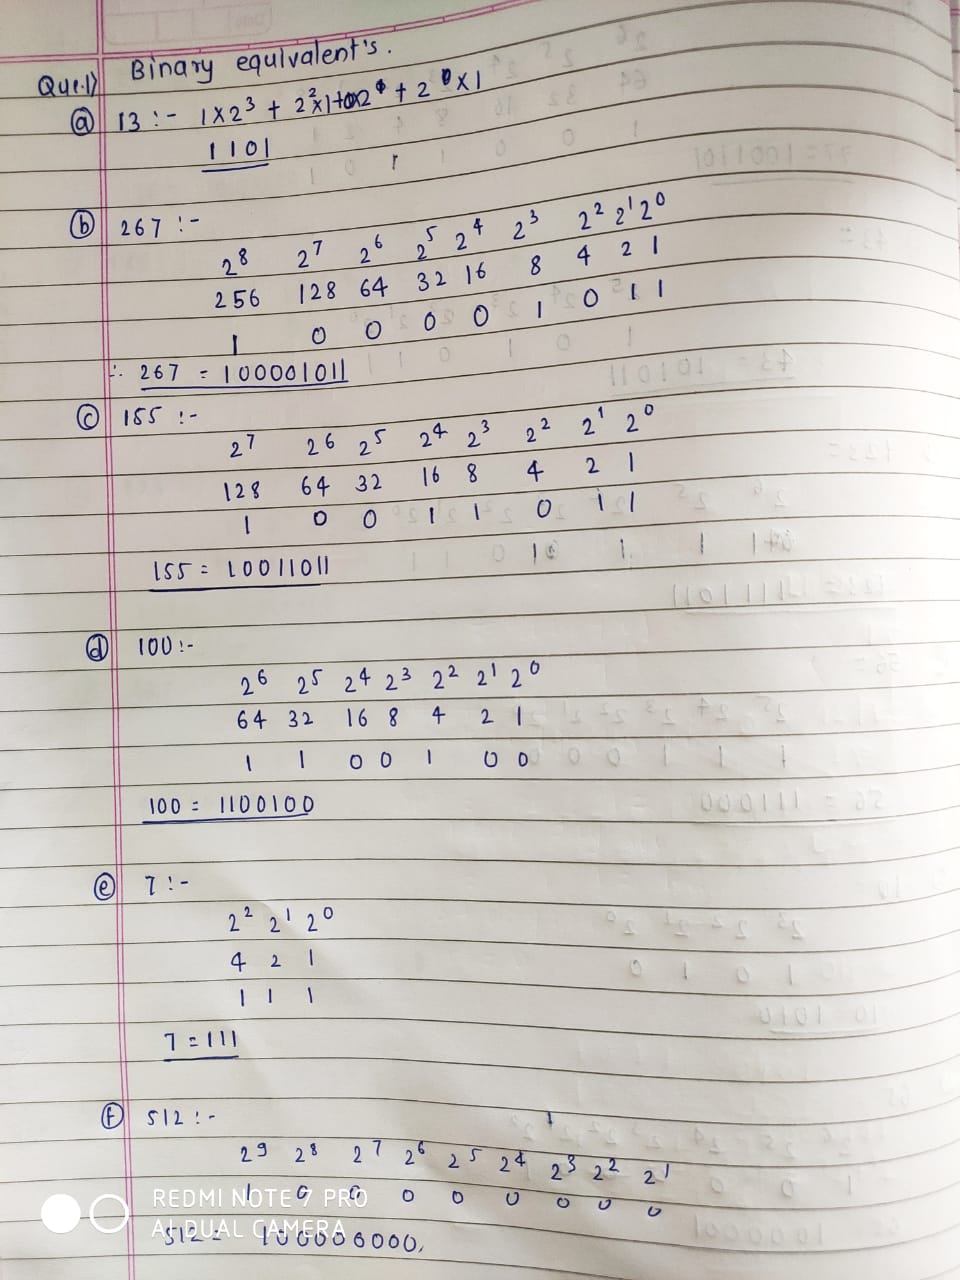 Que.1) Binary equivalent's.
(a) 13 :- 1×2³ + 2²×1+0×2¹ + 2⁰×1
1101
(b) 267 :-
2⁸ 2⁷ 2⁶ 2⁵ 2⁴ 2³ 2² 2¹ 2⁰
256 128 64 32 16 8 4 2 1
1 0 0 0 0 1 0 1 1
∴ 267 = 100001011
(c) 155 :-
2⁷ 2⁶ 2⁵ 2⁴ 2³ 2² 2¹ 2⁰
128 64 32 16 8 4 2 1
1 0 0 1 1 0 1 1
155 = 10011011
(d) 100 :-
2⁶ 2⁵ 2⁴ 2³ 2² 2¹ 2⁰
64 32 16 8 4 2 1
1 1 0 0 1 0 0
100 = 1100100
(e) 7 :-
2² 2¹ 2⁰
4 2 1
1 1 1
7 = 111
(f) 512 :-
2⁹ 2⁸ 2⁷ 2⁶ 2⁵ 2⁴ 2³ 2² 2¹
1 0 0 0 0 0 0 0 0
REDMI NOTE 7 PRO
AI DUAL CAMERA
512 = 100000000.